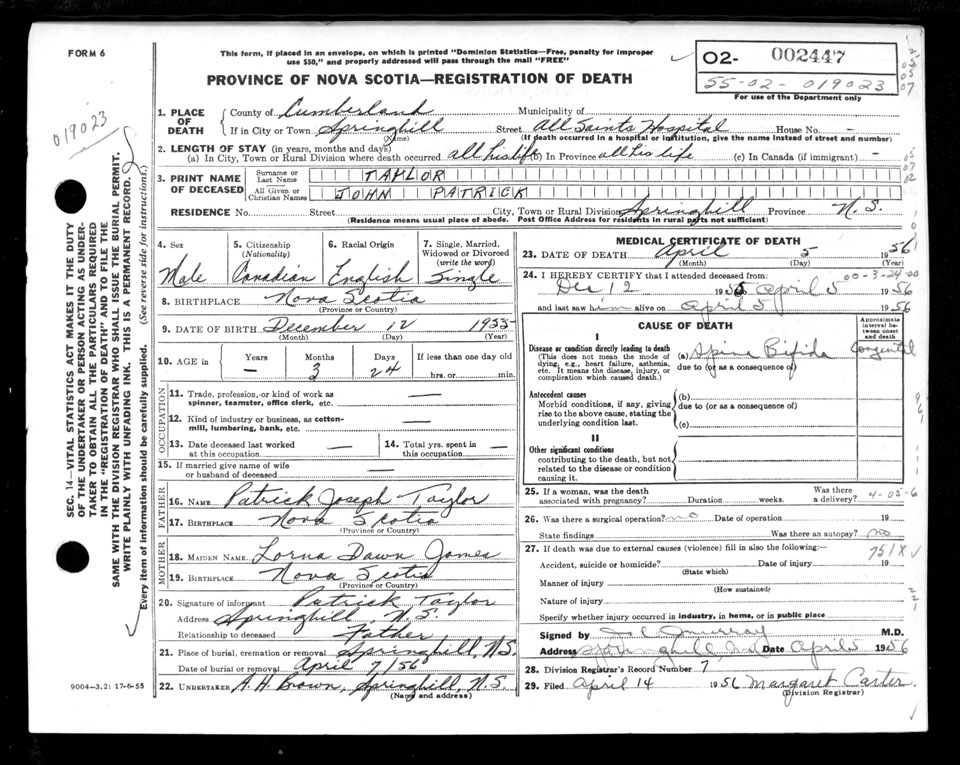 FORM 6
This form, if placed in an envelope, on which is printed "Dominion Statistics—Free, penalty for improper
use $50," and properly addressed will pass through the mail "FREE"
PROVINCE OF NOVA SCOTIA—REGISTRATION OF DEATH
02- 002447
55-02-019023
For use of the Department only
019023
SEC. 14—VITAL STATISTICS ACT MAKES IT THE DUTY
OF THE UNDERTAKER OR PERSON ACTING AS UNDER-
TAKER TO OBTAIN ALL THE PARTICULARS REQUIRED
IN THE "REGISTRATION OF DEATH" AND TO FILE THE
SAME WITH THE DIVISION REGISTRAR WHO SHALL ISSUE THE BURIAL PERMIT.
WRITE PLAINLY WITH UNFADING INK. THIS IS A PERMANENT RECORD.
Every item of information should be carefully supplied. (See reverse side for instructions.)
1. PLACE OF DEATH
County of Cumberland Municipality of
If in City or Town Springhill Street All Saints Hospital House No. -
(Name) (If death occurred in a hospital or institution, give the name instead of street and number)
2. LENGTH OF STAY (in years, months and days)
(a) In City, Town or Rural Division where death occurred all his life (b) In Province all his life (c) In Canada (if immigrant) -
3. PRINT NAME OF DECEASED
Surname or Last Name TAYLOR
All Given or Christian Names JOHN PATRICK
RESIDENCE No. Street City, Town or Rural Division Springhill Province N.S.
(Residence means usual place of abode. Post Office Address for residents in rural parts not sufficient)
4. Sex Male
5. Citizenship (Nationality) Canadian
6. Racial Origin English
7. Single, Married, Widowed or Divorced (write the word) Single
8. BIRTHPLACE Nova Scotia
(Province or Country)
9. DATE OF BIRTH December 12 1955
(Month) (Day) (Year)
10. AGE in Years - Months 3 Days 24 If less than one day old
hrs. or min.
OCCUPATION
11. Trade, profession, or kind of work as
spinner, teamster, office clerk, etc. —
12. Kind of industry or business, as cotton-
mill, lumbering, bank, etc. —
13. Date deceased last worked
at this occupation —
14. Total yrs. spent in
this occupation —
15. If married give name of wife
or husband of deceased —
FATHER
16. NAME Patrick Joseph Taylor
17. BIRTHPLACE Nova Scotia
(Province or Country)
MOTHER
18. MAIDEN NAME Lorna Dawn Jones
19. BIRTHPLACE Nova Scotia
(Province or Country)
20. Signature of informant Patrick Taylor
Address Springhill, N.S.
Relationship to deceased Father
21. Place of burial, cremation or removal Springhill, N.S.
Date of burial or removal April 7/56
22. UNDERTAKER A.H. Brown, Springhill, N.S.
(Name and address)
9004-3.2: 17-6-55
MEDICAL CERTIFICATE OF DEATH
23. DATE OF DEATH April 5 1956
(Month) (Day) (Year)
24. I HEREBY CERTIFY that I attended deceased from: 00-3-24-00
Dec 12 1955 April 5 1956
and last saw him alive on April 5 1956
CAUSE OF DEATH
Approximate interval between onset and death
I
Disease or condition directly leading to death
(This does not mean the mode of
dying, e.g., heart failure, asthenia,
etc. It means the disease, injury, or
complication which caused death.)
(a) Spina Bifida Congenital
due to (or as a consequence of)
Antecedent causes
Morbid conditions, if any, giving
rise to the above cause, stating the
underlying condition last.
(b)
due to (or as a consequence of)
(c)
II
Other significant conditions
contributing to the death, but not
related to the disease or condition
causing it.
25. If a woman, was the death
associated with pregnancy? Duration weeks. Was there a delivery? 4-05-6
26. Was there a surgical operation? no Date of operation 19
State findings Was there an autopsy? no
27. If death was due to external causes (violence) fill in also the following:— 751X
Accident, suicide or homicide? Date of injury 19
(State which)
Manner of injury
(How sustained)
Nature of injury
Specify whether injury occurred in industry, in home, or in public place
Signed by Murray M.D.
Address Springhill, N.S. Date April 5 1956
28. Division Registrar's Record Number 7
29. Filed April 14 1956 Margaret Carter
(Division Registrar)